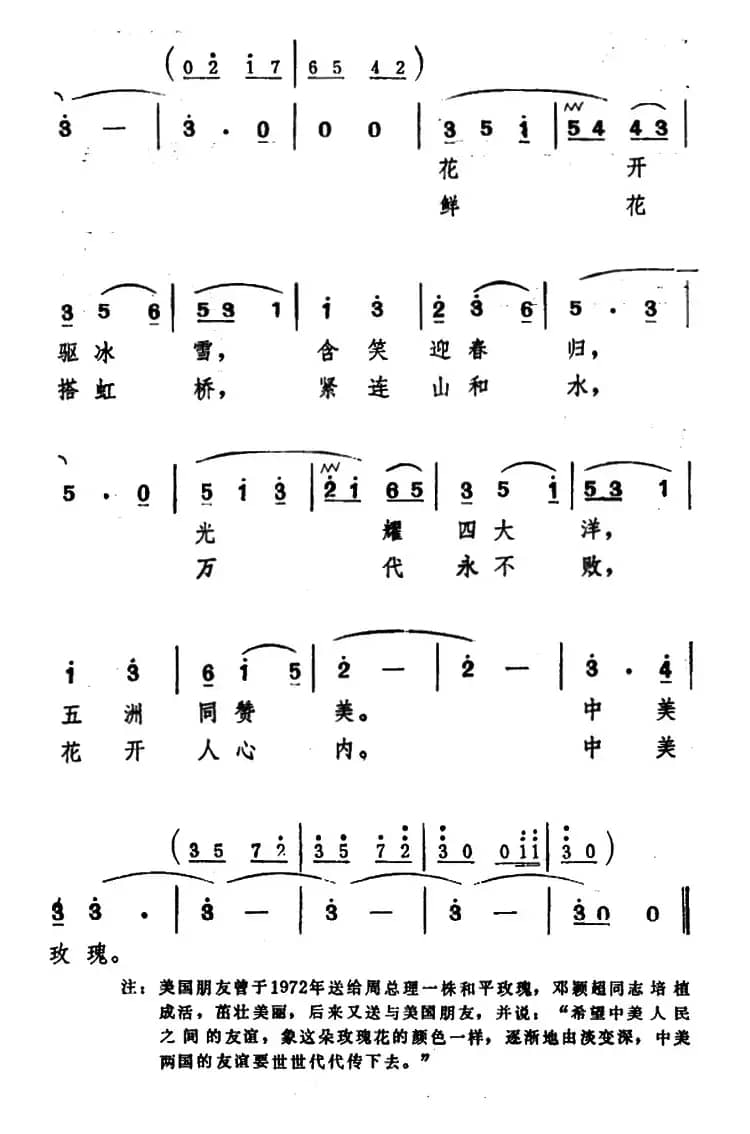 (0 2 1 7 | 6 5 4 2)
3 — | 3 · 0 | 0 0 | 3 5 1 | 5 4 4 3 |
花 开
鲜 花
3 5 6 | 5 3 1 | 1 3 | 2 3 6 | 5 · 3 |
驱 冰 雪， 含 笑 迎 春 归，
搭 虹 桥， 紧 连 山 和 水，
5 · 0 | 5 1 3 | 2 1 6 5 | 3 5 1 | 5 3 1 |
光 耀 四 大 洋，
万 代 永 不 败，
1 3 | 6 1 5 | 2 — | 2 — | 3 · 4 |
五 洲 同 赞 美。 中 美
花 开 人 心 内。 中 美
(3 5 7 2 | 3 5 7 2 | 3 0 0 1 1 | 3 0)
3 3 · | 3 — | 3 — | 3 — | 3 0 0 ‖
玫 瑰。
注：美国朋友曾于1972年送给周总理一株和平玫瑰，邓颖超同志培植
成活，茁壮美丽，后来又送与美国朋友，并说：“希望中美人民
之间的友谊，象这朵玫瑰花的颜色一样，逐渐地由淡变深，中美
两国的友谊要世世代代传下去。”